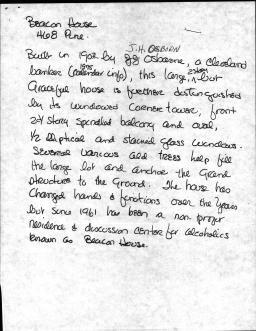 Beacon House
408 Pine.
J.H. OSBORN
Built in 1902 by JJ Osborne, a Cleveland
banker (calendar info), this large, 2 story but
Graceful house is further distinguished
by its windowed corner tower, front
2nd story spindled balcony and oval,
1/2 elliptical and stained glass windows.
Several various old trees help fill
the large lot and anchor the Grand
structure to the Ground. The house has
Changed hands & functions over the years
but since 1961 has been a non profit
residence & discussion center for alcoholics
known as Beacon House.